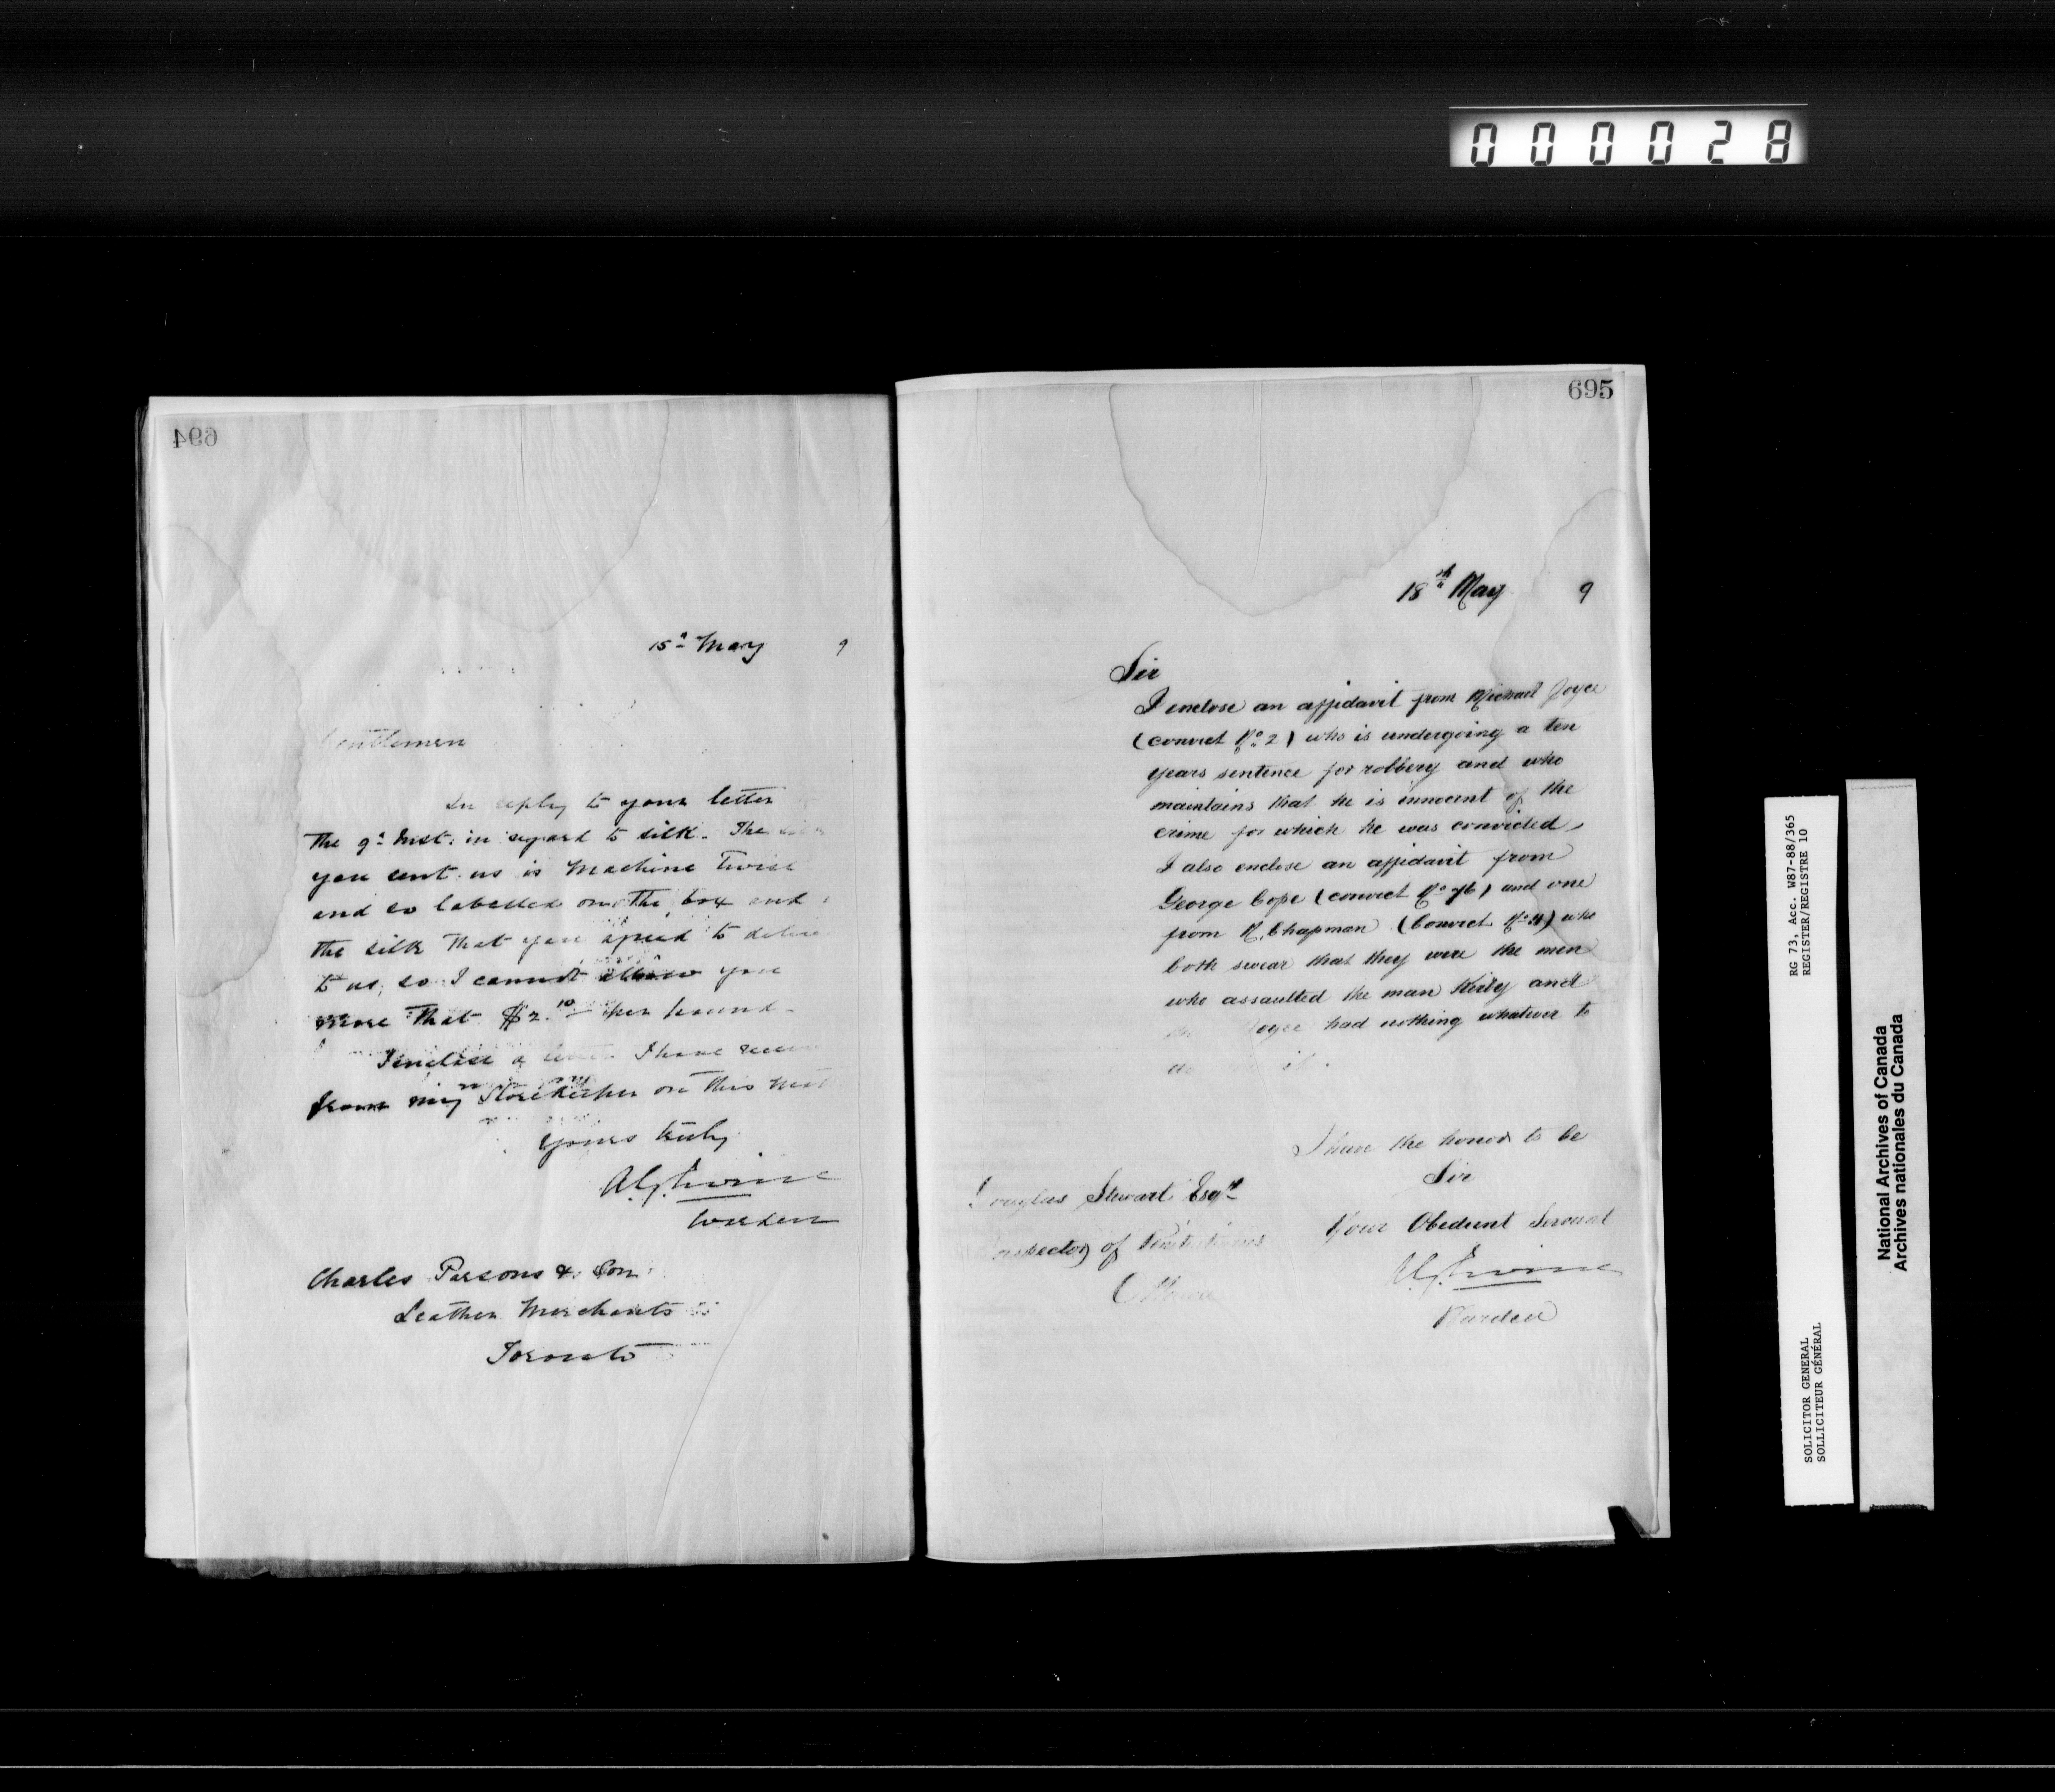 000028
694
15th May 9
Gentlemen
In reply to your letter
the 9th Inst. in regard to silk. The
you sent us is Machine Twist
and so labelled on the box and
the silk that you agreed to deliver
to us, so I cannot allow you
more that $2.10 per pound.
I enclose a letter I have
from my Storekeeper on this
Yours truly
A.G. Irvine
Warden
Charles Parsons & Son
Leather Merchants
Toronto
695
18th May 9
Sir
I enclose an affidavit from Michael Joyce
(convict No 2) who is undergoing a ten
years sentence for robbery and who
maintains that he is innocent of the
crime for which he was convicted,
I also enclose an affidavit from
George Cope (convict No 76) and one
from R. Chapman (Convict No 11) who
both swear that they were the men
who assaulted the man and
Joyce had nothing whatever to
do it.
I have the honor to be
Sir
Your Obedient Servant
A.G. Irvine
Warden
Douglas Stewart Esqre
Inspector of Penitentiaries
Ottawa
RG 73, Acc. W87-88/365
REGISTER/REGISTRE 10
SOLICITOR GENERAL
SOLLICITEUR GÉNÉRAL
National Archives of Canada
Archives nationales du Canada